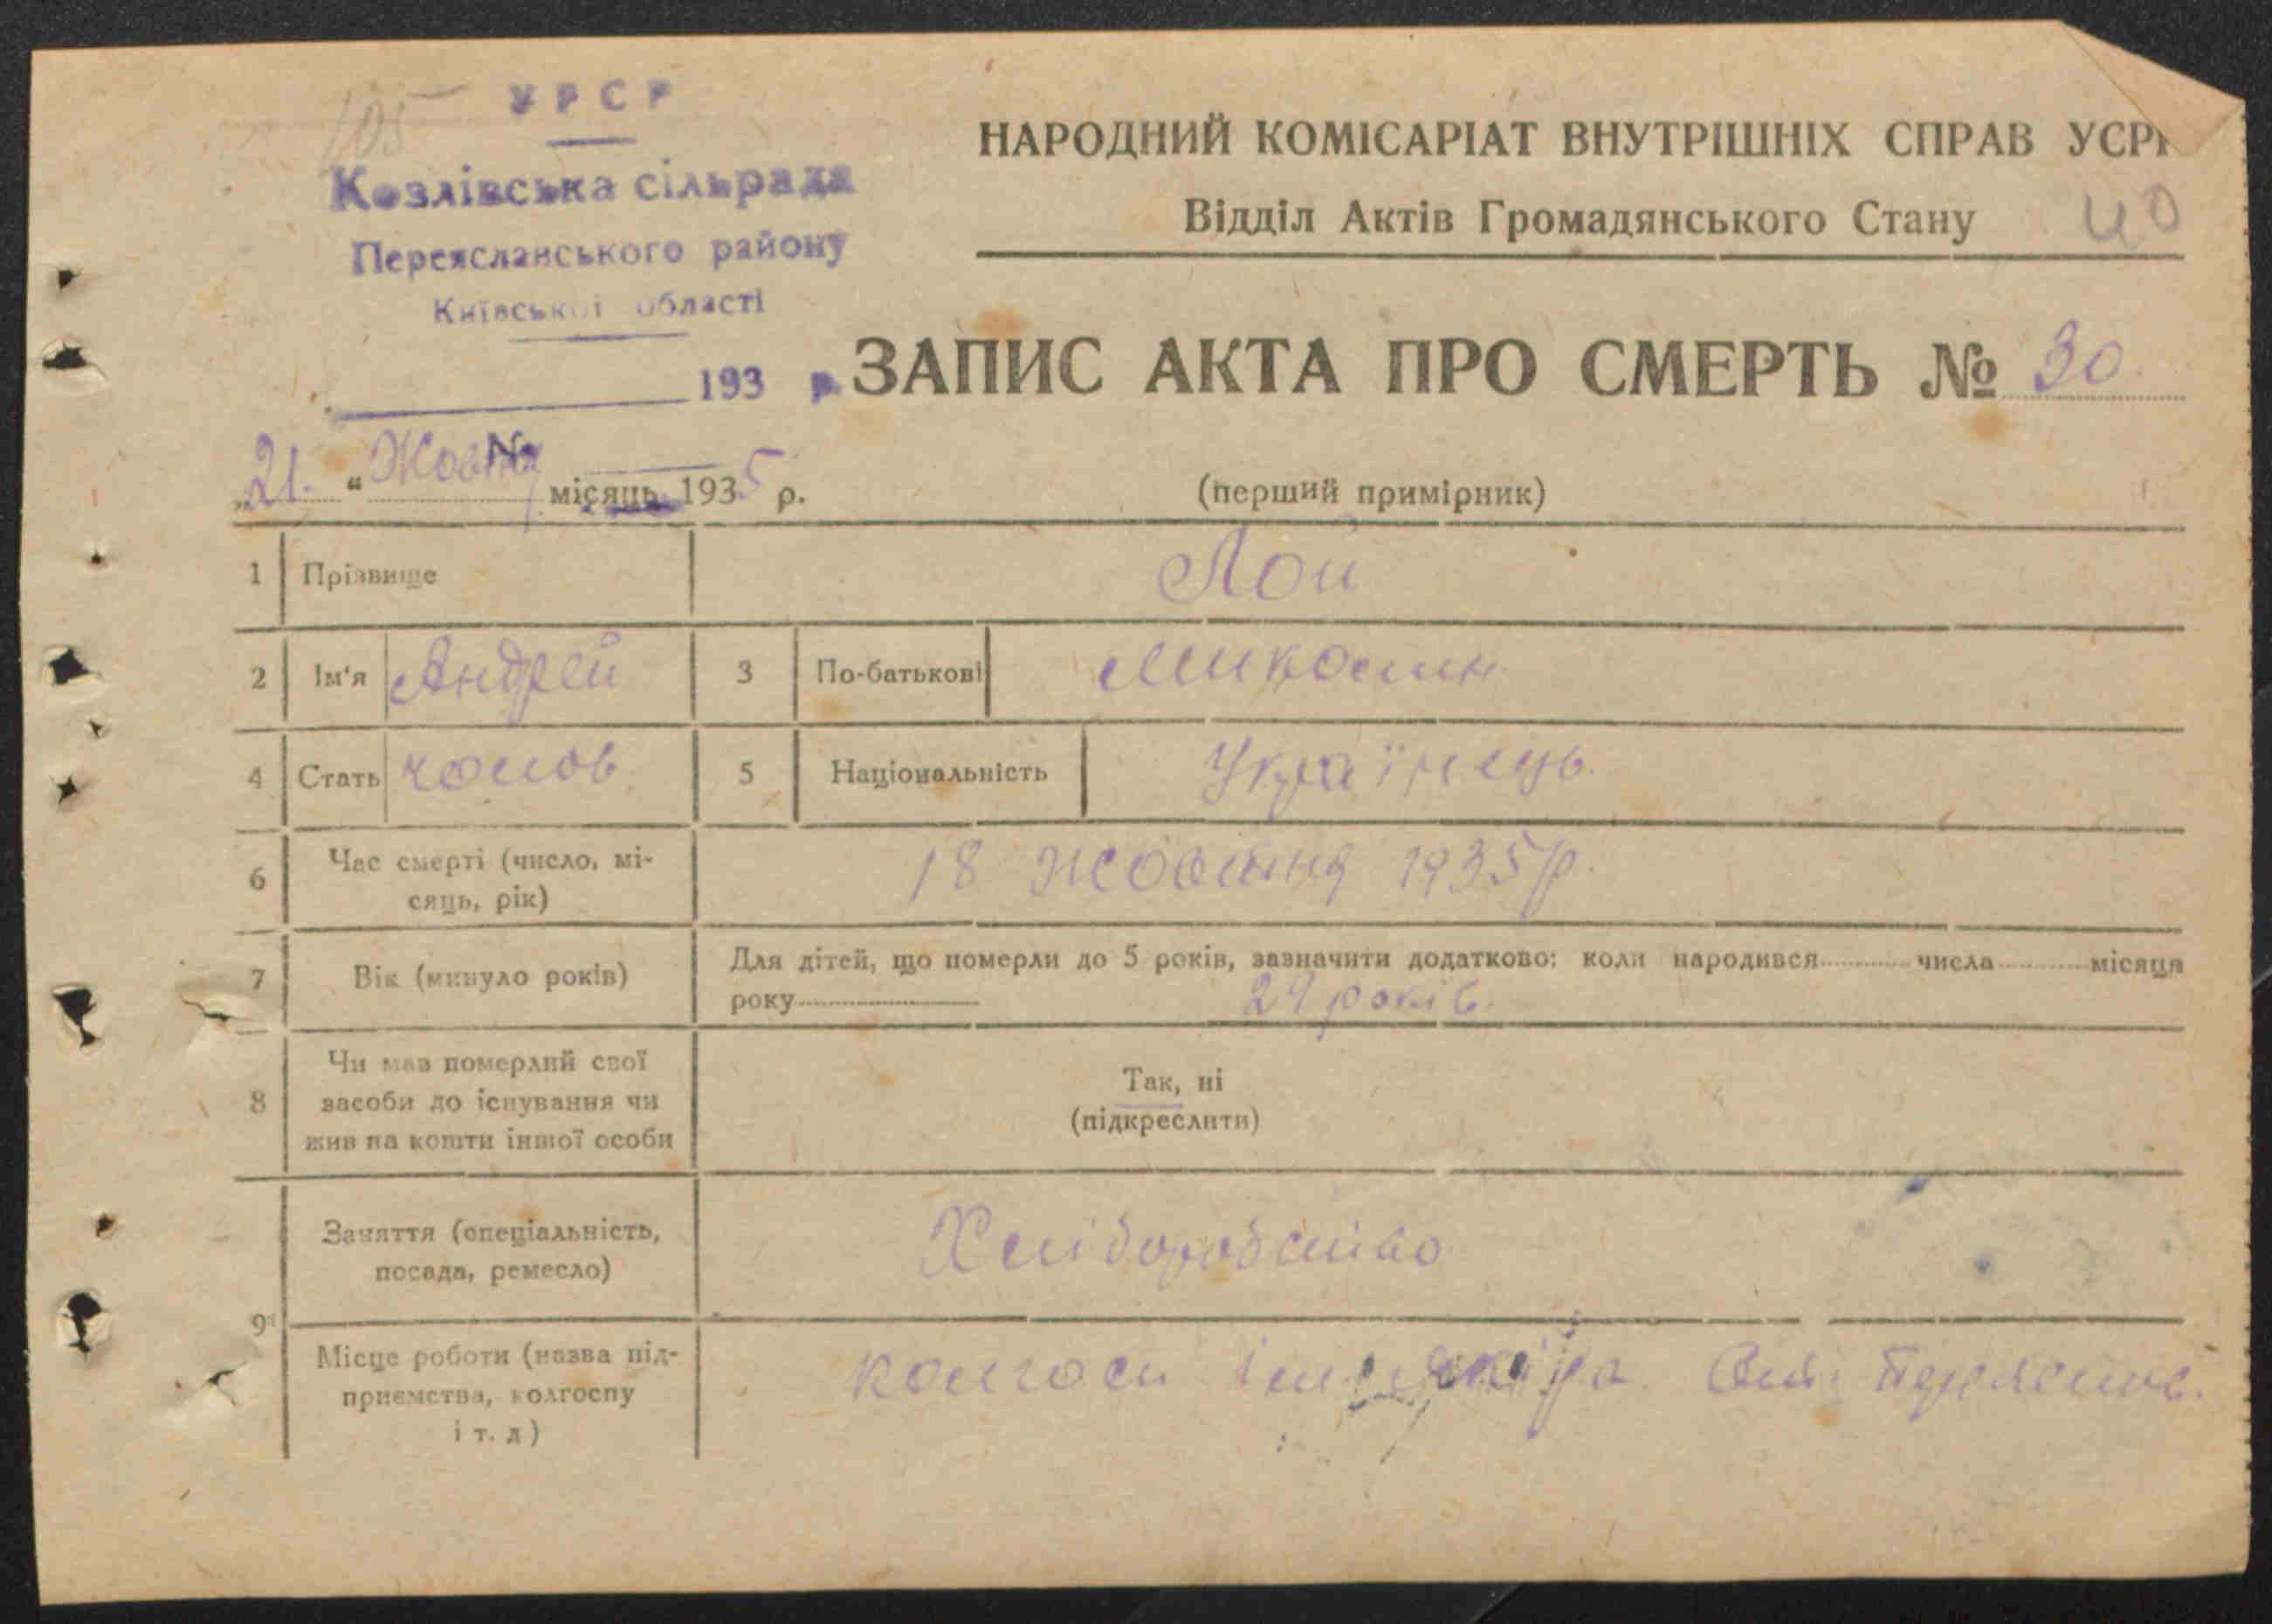 105
УРСР
Козлівська сільрада
Переяславського району
Київської області
193 р.
№
НАРОДНИЙ КОМІСАРІАТ ВНУТРІШНІХ СПРАВ УСРР
Відділ Актів Громадянського Стану
40
ЗАПИС АКТА ПРО СМЕРТЬ № 30.
„21.“ Жовтня місяць 1935 р.
(перший примірник)
1 Прізвище Лой
2 Ім'я Андрей 3 По-батькові Миколин.
4 Стать чолов. 5 Національність Українець.
6 Час смерті (число, мі-
сяць, рік)
18 жовтня 1935 р.
7 Вік (минуло років)
Для дітей, що померли до 5 років, зазначити додатково: коли народився числа місяця
року 29 років.
8 Чи мав померлий свої
засоби до існування чи
жив на кошти іншої особи
Так, ні
(підкреслити)
9 Заняття (спеціальність,
посада, ремесло)
Хліборобство
Місце роботи (назва під-
приємства, колгоспу
і т. д)
колгосп